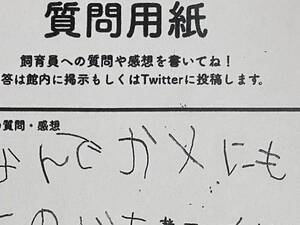 質問用紙
飼育員への質問や感想を書いてね！
答は館内に掲示もしくはTwitterに投稿します。
の質問・感想
なんでカメにも